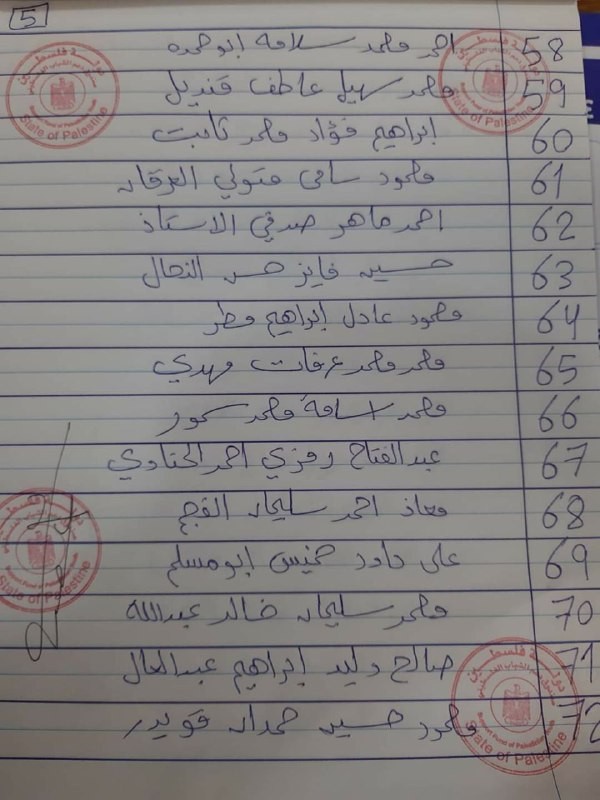 5
58 احمد محمد سلامة ابو حمده
59 محمد سهيل عاطف قنديل
60 ابراهيم فؤاد محمد ثابت
61 محمود سامي متولي العرقان
62 احمد ماهر صدقي الاستاذ
63 حسين فايز حسن النحال
64 محمود عادل ابراهيم مطر
65 محمد محمد عرفات مهدي
66 محمد اسامة محمد سمور
67 عبدالفتاح رمزي احمد الحناوي
68 معاذ احمد سليمان
69 علي داود خميس ابو مسلم
70 محمد سليمان خالد عبدالله
71 صالح وليد ابراهيم عبدالعال
72 محمود حسين حمدان قويدر
دولة فلسطين
State of Palestine
دولة فلسطين
State of Palestine
State of Palestine
دولة فلسطين
State of Palestine